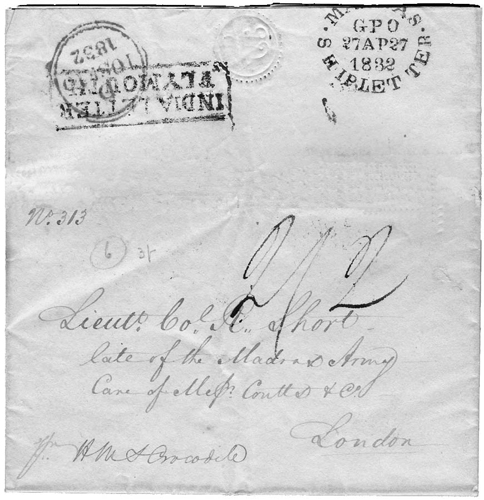 MADRAS
GPO
27AP27
1832
SHIPLETTER
1832
INDIA LETTER
PLYMOUTH
No. 313
6
2/2
Lieutt. Col. R. Short
late of the Madras Army
Care of Messrs. Coutts & Co.
London
pr. H M S Crocodile